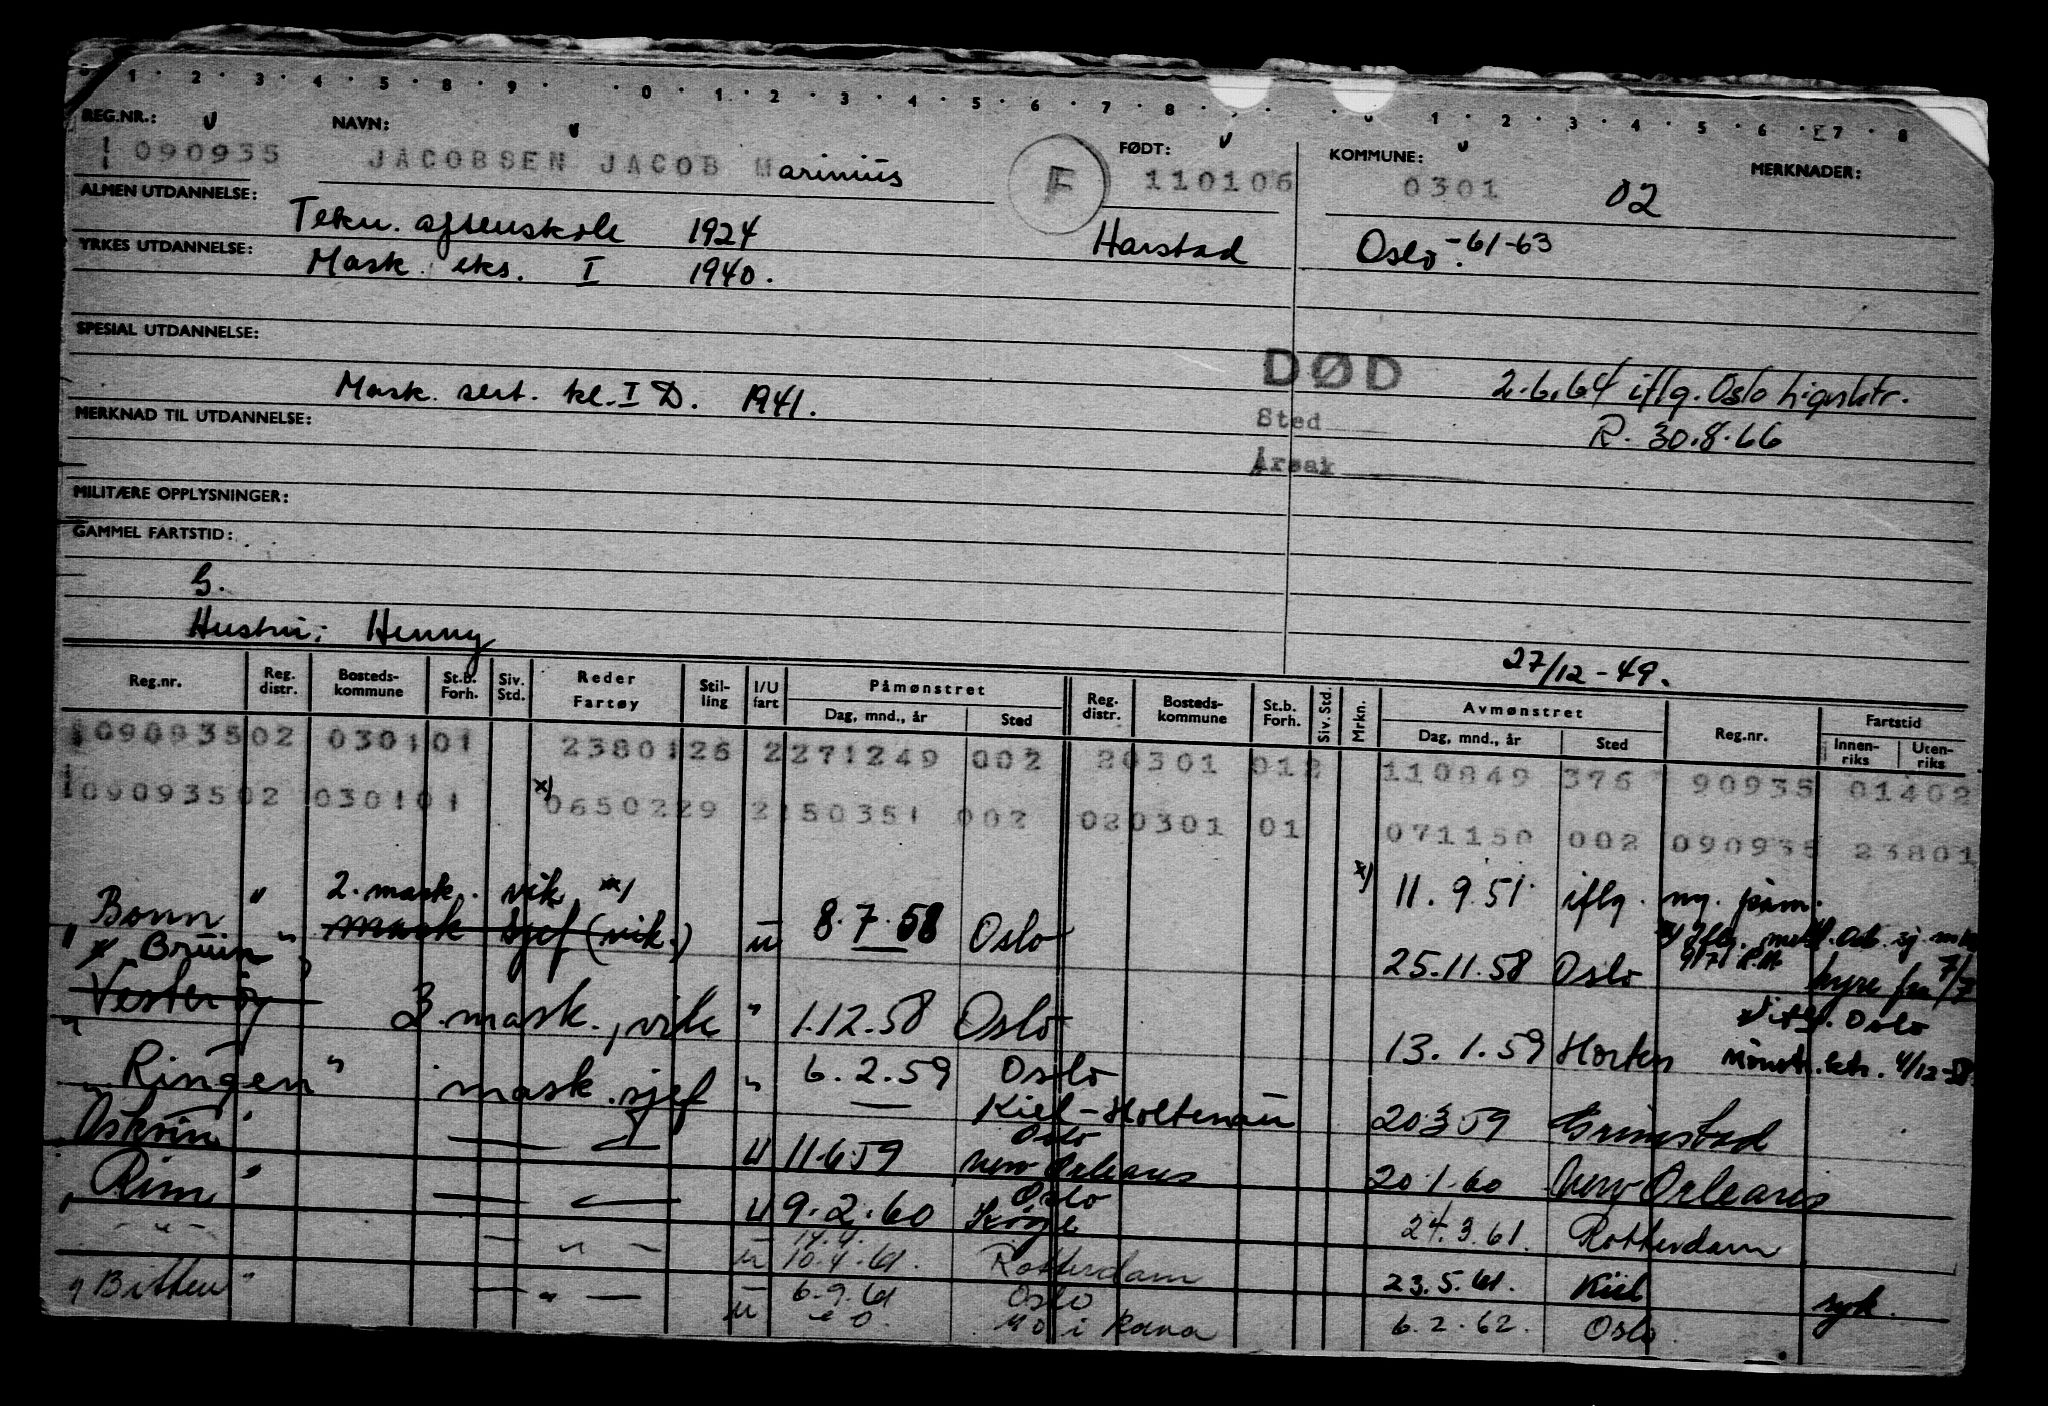 0 · 1 · 2 · 3 · 4 · 5 · 8 · 9 · 0 · 1 · 2 · 3 · 4 · 5 · 6 · 7 · 8 · 1 · 2 · 3 · 4 · 5 · 6 · 7 · 8
REG.NR.: NAVN: FØDT: KOMMUNE: MERKNADER:
090935 JACOBSEN JACOB Marinius F 110106 0301 02
ALMEN UTDANNELSE: Tekn. aftenskole 1924 Harstad Oslo. -61-63
YRKES UTDANNELSE: Mask. eks. I 1940.
SPESIAL UTDANNELSE:
DØD 2.6.64 iflg. Oslo
Mask. sert. kl. I D. 1941.
Sted R. 30.8.66
MERKNAD TIL UTDANNELSE:
Årsak
MILITÆRE OPPLYSNINGER:
GAMMEL FARTSTID:
G.
Hustru: Henny
27/12-49.
Reg.nr. Reg. distr. Bosteds-kommune St.b. Forh. Siv. Std. Reder Fartøy Stil-ling I/U fart Påmønstret Dag, mnd., år Sted Reg. distr. Bosteds-kommune St.b. Forh. Siv. Std. Mrkn. Avmønstret Dag, mnd., år Sted Reg.nr. Fartstid Innen-riks Uten-riks
09093502 030101 2380126 2271249 002 20301 012 110849 376 90935 01402
09093502 030101 x) 0650229 2150351 002 020301 01 071150 002 090935 23801
x) 11.9.51 iflg. ny. påm.
2. mask. vik.
"Bonn" mask sjef (vik.) u 8.7.58 Oslo
"Bruin" 25.11.58 Oslo hyre fra 7/7
Vesterøy 3. mask., vik " 1.12.58 Oslo 13.1.59 Horten Oslo mønstr.ktr. 4/12-58
"Ringen" mask. sjef " 6.2.59 Oslo
Kiel-Holtenau 20.3.59 Grimstad
"Askvin" — " — u 11.6.59 Oslo
New Orleans 20.1.60 New Orleans
"Rim" — " — u 9.2.60 Oslo
Køge 24.3.61. Rotterdam
- " - — " — u 14.4.
10.4.61. Rotterdam 23.5.61. Kiel syk.
"Bitten" — " — u 6.9.61 Oslo
Mo i Rana 6.2.62. Oslo